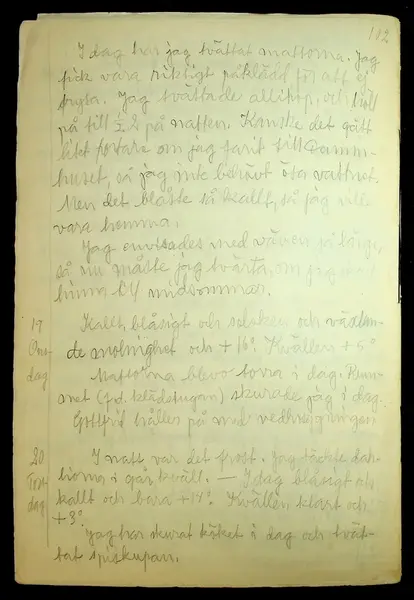 112
I dag har jag tvättat mattorna. Jag
fick vara riktigt påklädd för att ej
frysa. Jag tvättade allihop, och höll
på till ½ 2 på natten. Kanske det gått
litet fortare om jag farit till Damm-
huset, så jag inte behövt ösa vattnet.
Men det blåste så kallt, så jag ville
vara hemma.
Jag envisades med väven så länge,
så nu måste jag tvärta, om jag
hinna till midsommar.
19 Kallt, blåsigt och solsken och växlan-
Ons- de molnighet och +16°. Kvällen +6°
dag Mattorna blevo torra i dag. Rum-
met (f.d. klädstugan) skurade jag i dag.
Gottfrid håller på med vedhuggningen.
20 I natt var det frost. Jag täckte dah-
Tors- liorna i går kväll. — I dag blåsigt och
dag kallt och bara +14°. Kvällen klart och
+3°.
Jag har skurat köket i dag och tvät-
tat spiskupan.